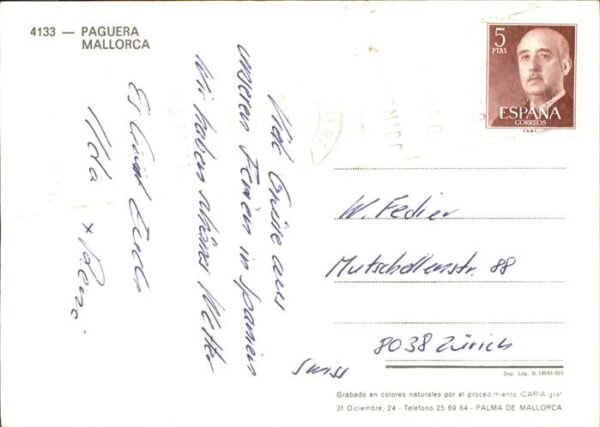 4133 — PAGUERA
MALLORCA
5
PTAS
ESPAÑA
CORREOS
Grüsse aus
unseren Ferien in Spanien
Wir haben schönes Wetter
Es
W. Fedier
Mutschellenstr. 88
8038 Zürich
Swiss
Dep. Leg. B. 19582-XIV
Grabado en colores naturales por el procedimiento ICARIA graf
31 Diciembre, 24 - Telefono 25 69 64 - PALMA DE MALLORCA